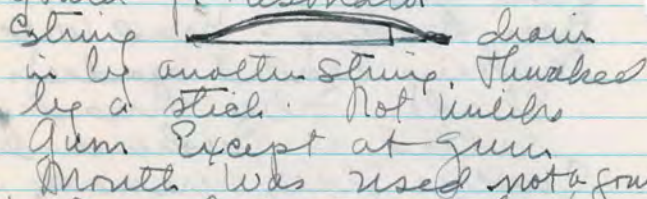 String drawn
in by another string. Thwaked
by a stick. Not unlike
Gum Except at gum
Mouth was used not a gou